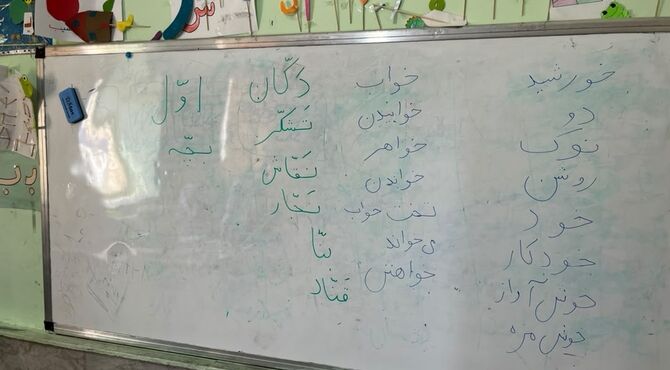 خورشید
دو
نوک
روشن
خود
خودکار
خوش آواز
خوش مزه
خواب
خوابیدن
خواهر
خواندن
تخت خواب
می خواند
خواهش
دکّان
تَشکّر
نَقّاش
نَجّار
بنّا
قَنّاد
اوّل
بچّه